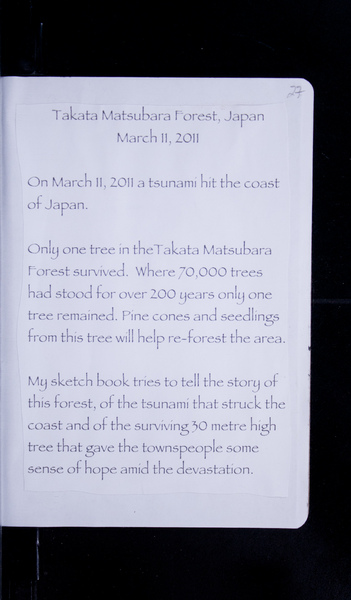 27
Takata Matsubara Forest, Japan
March 11, 2011
On March 11, 2011 a tsunami hit the coast
of Japan.
Only one tree in theTakata Matsubara
Forest survived. Where 70,000 trees
had stood for over 200 years only one
tree remained. Pine cones and seedlings
from this tree will help re-forest the area.
My sketch book tries to tell the story of
this forest, of the tsunami that struck the
coast and of the surviving 30 metre high
tree that gave the townspeople some
sense of hope amid the devastation.